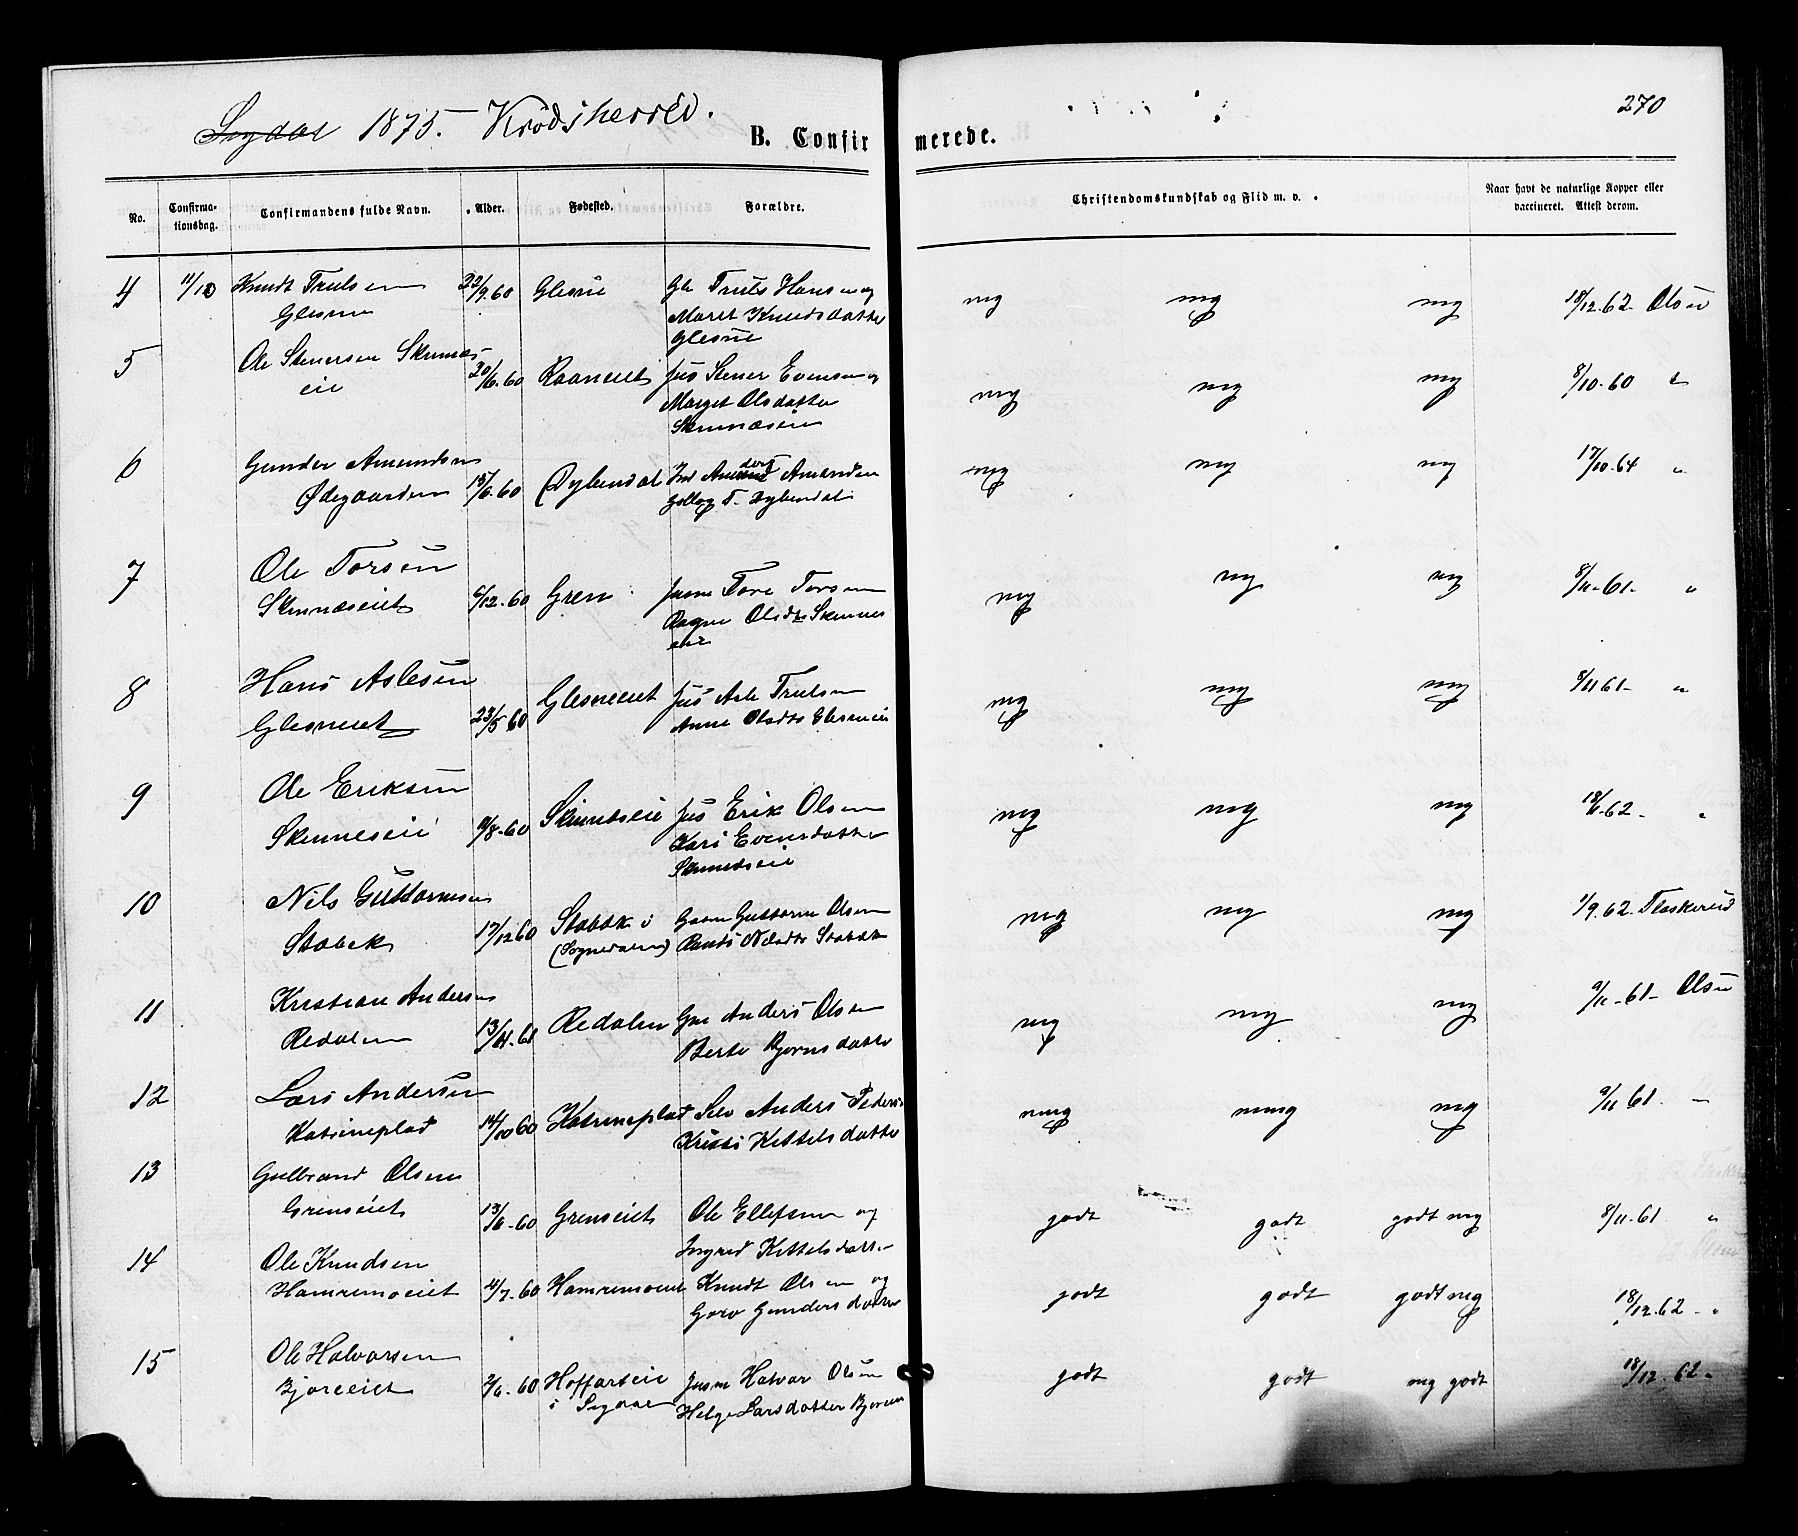 Sigdal 1875. Krødsherred.
270
B. Confirmerede.
No.
Confirma-
tionsdag.
Confirmandens fulde Navn.
Alder.
Fødested.
Forældre.
Christendomskundskab og Flid m. v.
Naar havt de naturlige Kopper eller
vaccineret. Attest derom.
4 11/10 Knudt Trulsen 22/9.60 Glesne Truls Hansen og mg mg mg 18/12.62. Olsen
Glesne Maret Knudsdatter
Glesne
5 Ole Stenersen Skinnes 20/6.60 Raaneiet Jus Stener Evensen og mg mg mg 8/10.60 "
eie Marget Olsdatter
Skinnæseie
6 Gunder Amundsen 15/6.60 Dybendal Amundsen mg mg mg 17/10.64 "
Ødegaarden T. Dybendal
7 Ole Torsen Gren Tore Torsen mg mg mg 8/11.61. "
Skinnæseiet 6/12.60 Ragne Olsdtr Skinnes
eie
8 Hans Aslesen Glesneeiet Jus Asle Trulsen mg mg mg 8/11 61. "
Glesneiet 23/5 60 Anne Olsdtr Glesneeie
9 Ole Eriksen Skinneseie Jus Erik Olsen mg mg mg 62. "
Skinneseie /8.60 Kari Evensdatter
Skinneseie
10 Nils Guttormsen 17/12 60 Stabek i Guttorm Olsen mg mg mg 1/9.62. Flaskerud
Stabek (Sognedalen) Randi Nilsdtr Stabek
11 Kristian Andersen 13/ Redalen Gm Anders Olsen mg mg mg 9/11.61. Olsen
Redalen Berte Bjørnsdatter
12 Lars Andersen 14/10 60 Katrineplad Selv Anders Peders mg mg mg 9/11 61. "
Katrineplad Kristi Kittelsdatter
13 Gulbrand Olsen
Grenseiet 13/6.60 Grenseiet Ole Ellefsen og godt godt godt mg 8/11.61 "
Ingrid Kittelsdatter
14 Ole Knudsen
Hamremoeiet 4/7.60 Hamremoeiet Knudt Olsen og godt godt godt mg 18/12.62 "
Goro Gundersdatter
15 Ole Halvorsen
Bjøreeiet 2/6.60 Hoffarteie Jusm Halvor Olsen godt godt mg godt 18/12.62 "
i Sigdal Helge Larsdatter Bjøreeie